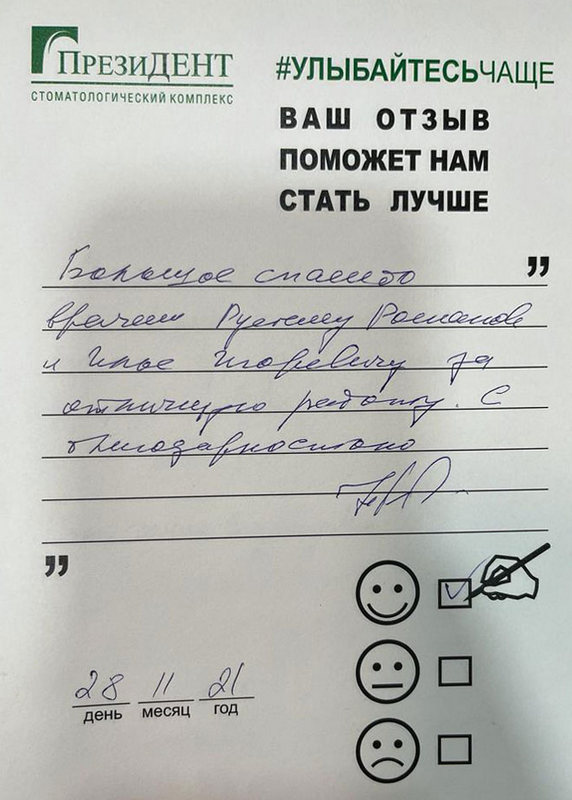 ПрезиДЕНТ
СТОМАТОЛОГИЧЕСКИЙ КОМПЛЕКС
#УЛЫБАЙТЕСЬЧАЩЕ
ВАШ ОТЗЫВ
ПОМОЖЕТ НАМ
СТАТЬ ЛУЧШЕ
Большое спасибо
врачам Рустему
и Илье Игоревичу за
отличную работу. С
благодарностью
28 11 21
день месяц год